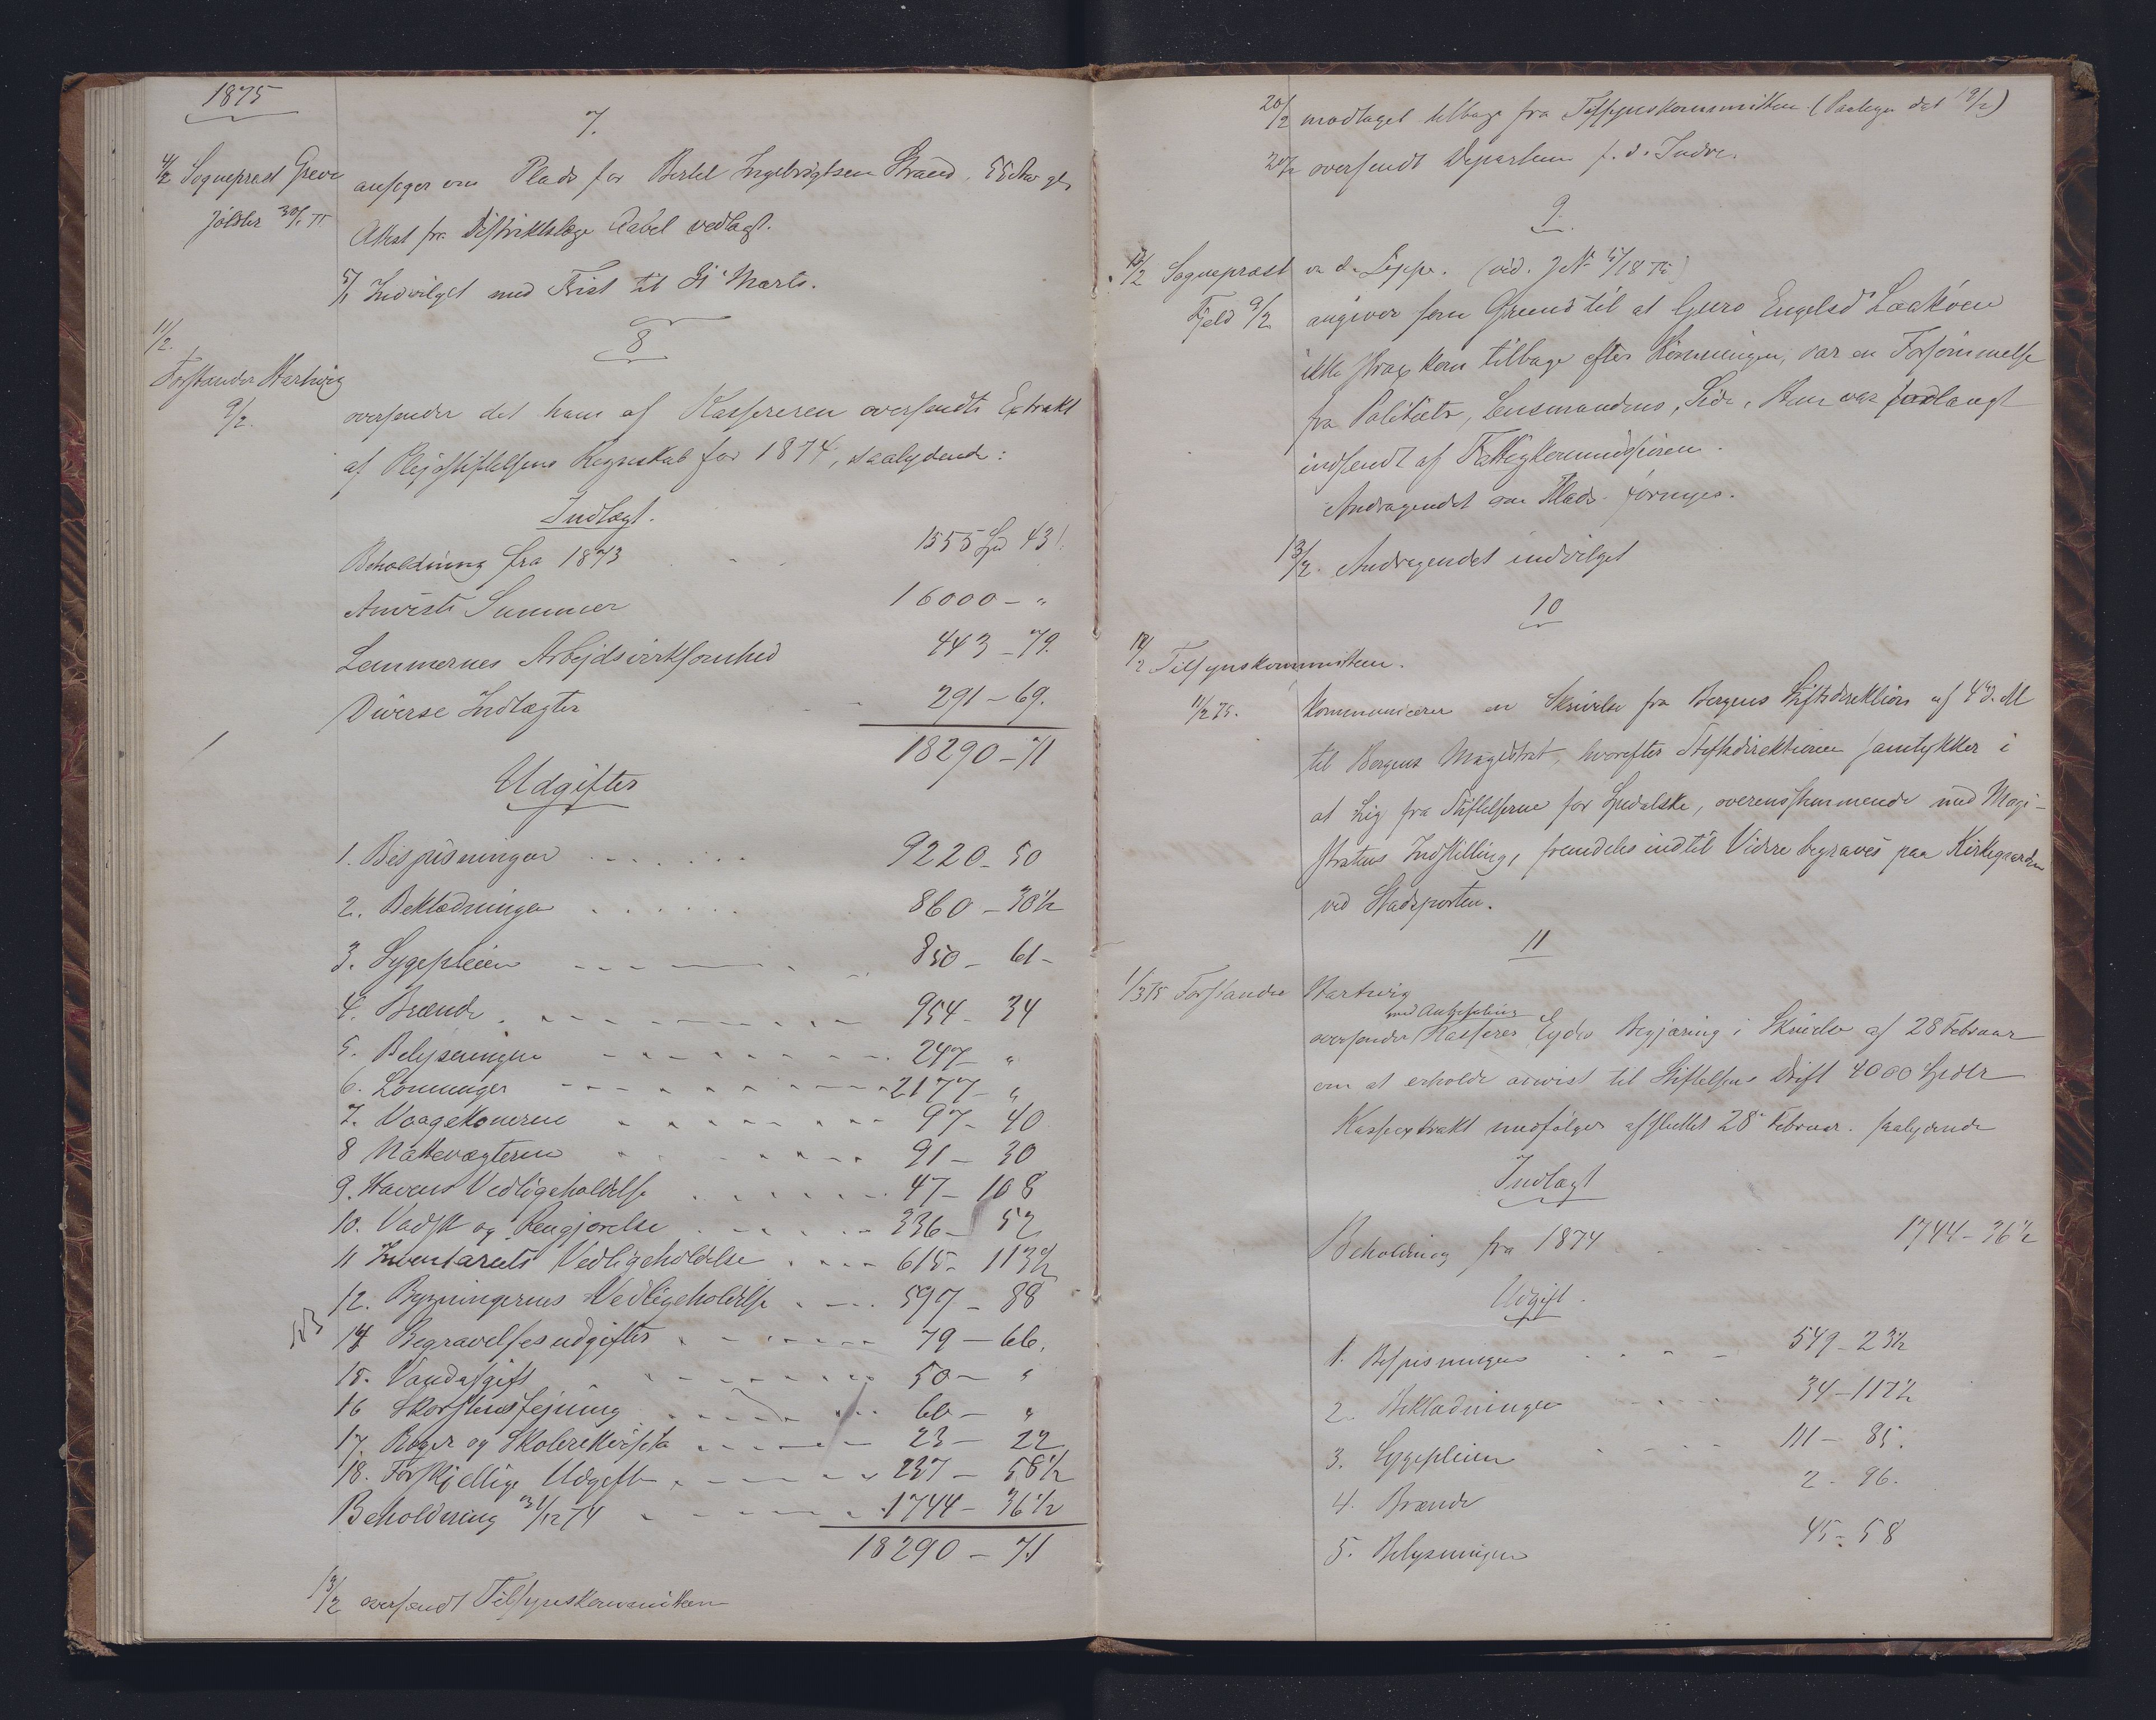 1875
7.
4/2 Sogneprest Greve
Jölster 30/1 75
ansøger om Plads for Bertel Ingebrigtsen Strand, 55 Aar gl.
Attest fra Distriktslæge Kabel vedlagt.
5/ Indvilget med Frist til 31 Marts.
8
11/2.
Forstander Hartwig
9/2.
oversender det ham af Kassereren oversendte Extrakt
af Plejestiftelsens Regnskab for 1874, saalydende:
Indtægt.
Beholdning fra 1873 1555 Spd 43
Anviste Summer 16000 - "
Lemmernes Arbejdsvirksomhed 443 - 79.
Diverse Indtægter 291 - 69.
18290 - 71
Udgifter
1. Bespisningen 9220 - 50
2. Beklædningen 860 - 30½
3. Sygepleien 850 - 61 -
4. Brænde 954 - 34
5. Belysningen 247 - "
6. Lønninger 2177 - "
7. Vaagekonerne 97 - 40
8 Nattevægteren 91 - 30
9. Havens Vedligeholdelse 47 - 108
10. Vadsk og Rengjørelse 336 - 52
11 Inventarets Vedligeholdelse 615 - 113½
12. Bygningernes Vedligeholdelse 597 - 88
14 Begravelsesudgifter 79 - 66.
15. Vandafgift 50 - "
16 Skorstensfejning 60 - "
17. Bøger og Skolerekvisita 23 - 22
18. Forskjellige Udgifter 237 - 58½
Beholdning 31/12 74 1744 - 36½
18290 - 71
13/2 oversendt Tilsynskommiteen
20/2 modtaget tilbage fra Tilsynskommitteen. (Paategn. dat 19/2)
20/2 oversendt Departem. f. d. Indre.
9.
12/2 Sogneprest v. d. Lippe. (vid. J No 5/18 75)
Fjeld 9/2
angiver som Grund til at Guro Engelsd Laakøen
ikke strax kom tilbage efter Rømningen, var en Forsømmelse
fra Politiets, Lensmandens, Side. Hun var forlængst
indsendt af Fattigkommissionen.
Andragendet om Plads fornyes.
13/2. Andragendet indvilget
10
12/2 Tilsynskommitteen.
11/2 75.
kommunicerer en Skrivelse fra Bergens Stiftsdirektion af 4 d. M
til Bergens Magistrat, hvorefter Stiftsdirektionen samtykker i
at Lig fra Stiftelserne for Spedalske, overensstemmende med Magi-
stratens Indstilling, fremdeles indtil Videre begraves paa Kirkegaarden
ved Stadsporten.
11
1/3 75 Forstander Hartwig
med Anbefaling
oversender Kasserer Eydes Begjæring i Skrivelse af 28 Februar
om at erholde anvist til Stiftelsens Drift 4000 Spdlr
Kasseextrakt medfølger afsluttet 28 Februar. saalydende
Indtægt
Beholdning fra 1874 1744 - 36½
Udgift.
1. Bespisningen 549 - 23½
2. Beklædningen 34 - 117½
3. Sygepleien 111 - 85.
4. Brænde 2 - 96.
5. Belysningen 45 - 58